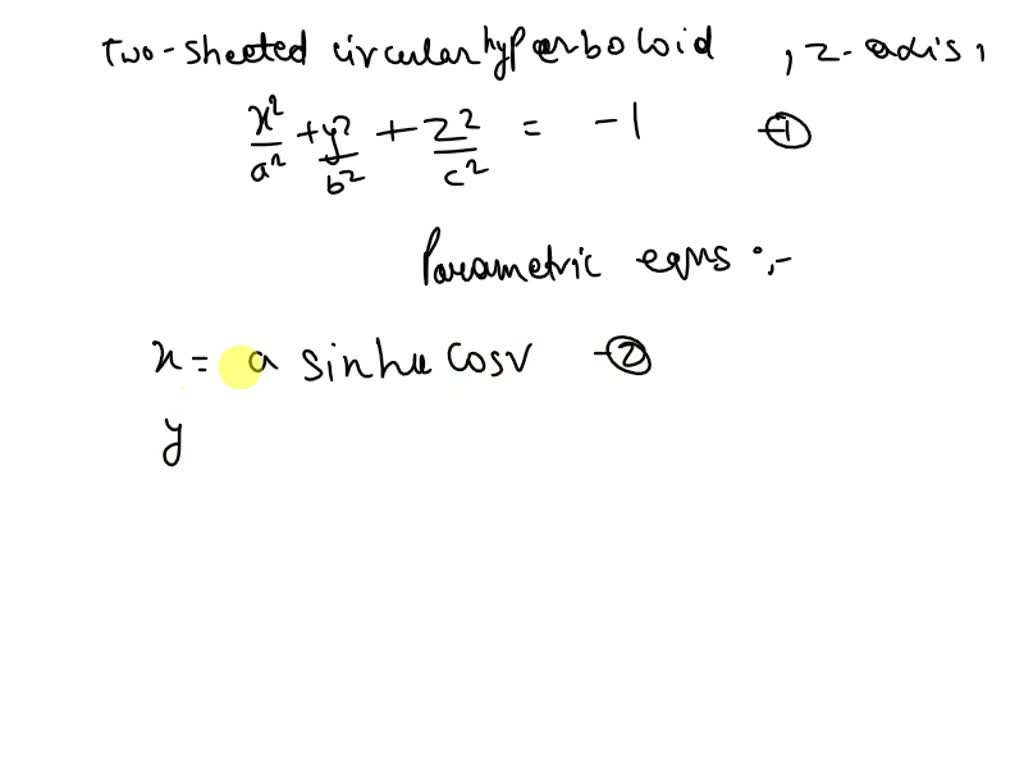 Two-sheeted circular hyperboloid , z-axis,
x²/a² + y²/b² + z²/c² = -1 -①
Parametric eqns :-
x = a sinhu cosv -②
y